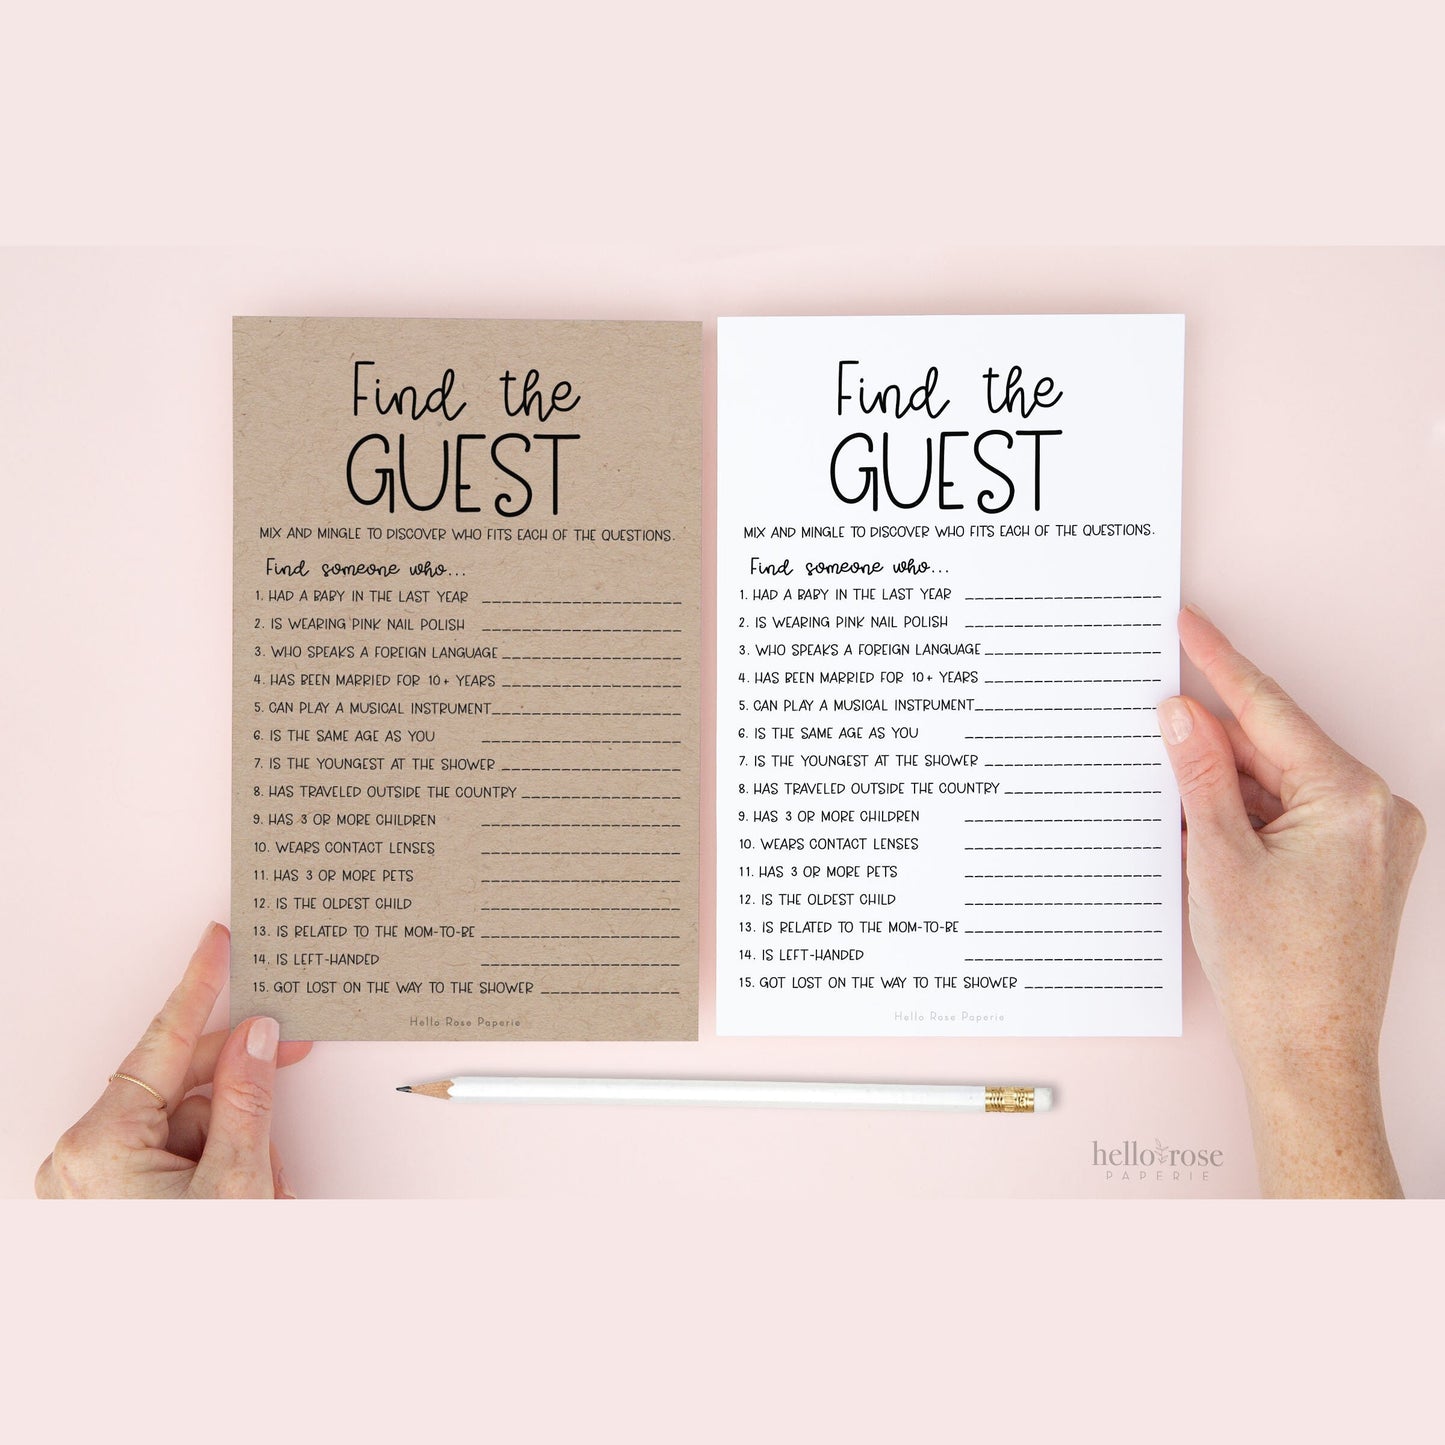 Find the
GUEST
MIX AND MINGLE TO DISCOVER WHO FITS EACH OF THE QUESTIONS.
Find someone who...
1. HAD A BABY IN THE LAST YEAR ____________________
2. IS WEARING PINK NAIL POLISH ____________________
3. WHO SPEAKS A FOREIGN LANGUAGE __________________
4. HAS BEEN MARRIED FOR 10+ YEARS __________________
5. CAN PLAY A MUSICAL INSTRUMENT___________________
6. IS THE SAME AGE AS YOU ____________________
7. IS THE YOUNGEST AT THE SHOWER __________________
8. HAS TRAVELED OUTSIDE THE COUNTRY ________________
9. HAS 3 OR MORE CHILDREN ____________________
10. WEARS CONTACT LENSES ____________________
11. HAS 3 OR MORE PETS ____________________
12. IS THE OLDEST CHILD ____________________
13. IS RELATED TO THE MOM-TO-BE ____________________
14. IS LEFT-HANDED ____________________
15. GOT LOST ON THE WAY TO THE SHOWER ______________
Hello Rose Paperie
Find the
GUEST
MIX AND MINGLE TO DISCOVER WHO FITS EACH OF THE QUESTIONS.
Find someone who...
1. HAD A BABY IN THE LAST YEAR ____________________
2. IS WEARING PINK NAIL POLISH ____________________
3. WHO SPEAKS A FOREIGN LANGUAGE __________________
4. HAS BEEN MARRIED FOR 10+ YEARS __________________
5. CAN PLAY A MUSICAL INSTRUMENT___________________
6. IS THE SAME AGE AS YOU ____________________
7. IS THE YOUNGEST AT THE SHOWER __________________
8. HAS TRAVELED OUTSIDE THE COUNTRY ________________
9. HAS 3 OR MORE CHILDREN ____________________
10. WEARS CONTACT LENSES ____________________
11. HAS 3 OR MORE PETS ____________________
12. IS THE OLDEST CHILD ____________________
13. IS RELATED TO THE MOM-TO-BE ____________________
14. IS LEFT-HANDED ____________________
15. GOT LOST ON THE WAY TO THE SHOWER ______________
Hello Rose Paperie
hello rose
PAPERIE